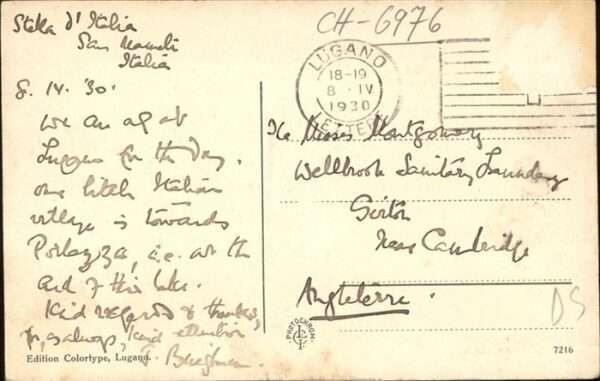 CH-6976
Stella d'Italia
San Mamete
Italia
8. IV. '30.
LUGANO
18-19
8 IV
1930
LETTERE
We are all at
Lugano for the day.
Our little Italian
village is towards
Porlezza, i.e. at the
end of this lake.
Kind regards & thanks,
for, as always, kind attention
The Misses Montgomery
Wellbrook Sanitary Laundry
Girton
Near Cambridge
Angleterre.
DS
PHOTOCHROM
Edition Colortype, Lugano.
7216